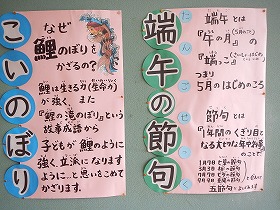 こいのぼり
なぜ
鯉のぼりを
かざるの?
鯉は生きる力(生命力)
が強く、また
『鯉の滝のぼり』という
故事成語から
子どもが鯉のように
強く立派になります
ように…と思いをこめて
かざります。
端午の節句
たんごのせっく
端午とは
『午の月』の
『端っこ』
つまり
5月のはじめのころ
節句とは
『季節のくぎり目と
なる大切な年中行事
のこと』
1月7日 七草の節句
3月3日 桃の節句
5月5日 端午の節句
7月7日 七夕の節句
9月9日 菊の節句
五節句